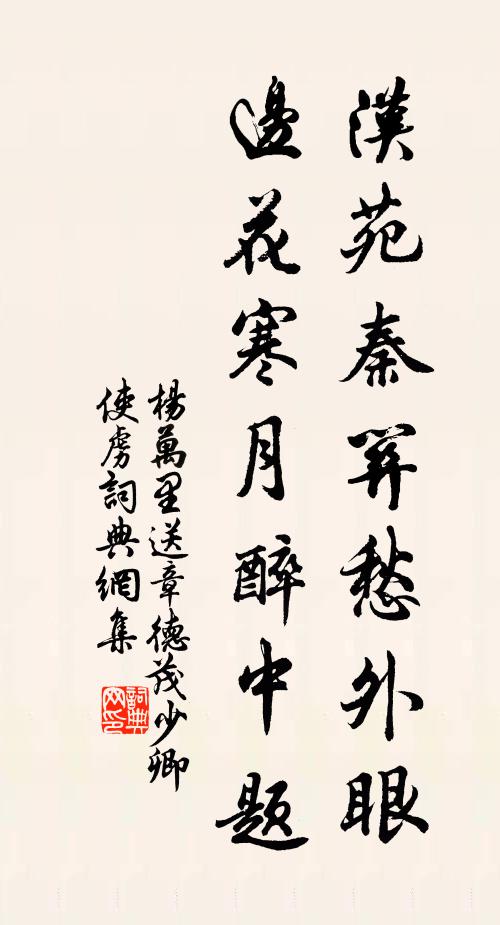 漢苑秦關愁外眼
邊花寒月醉中題
楊萬里送章德茂少卿
使虜詞典網集
詞典
网印